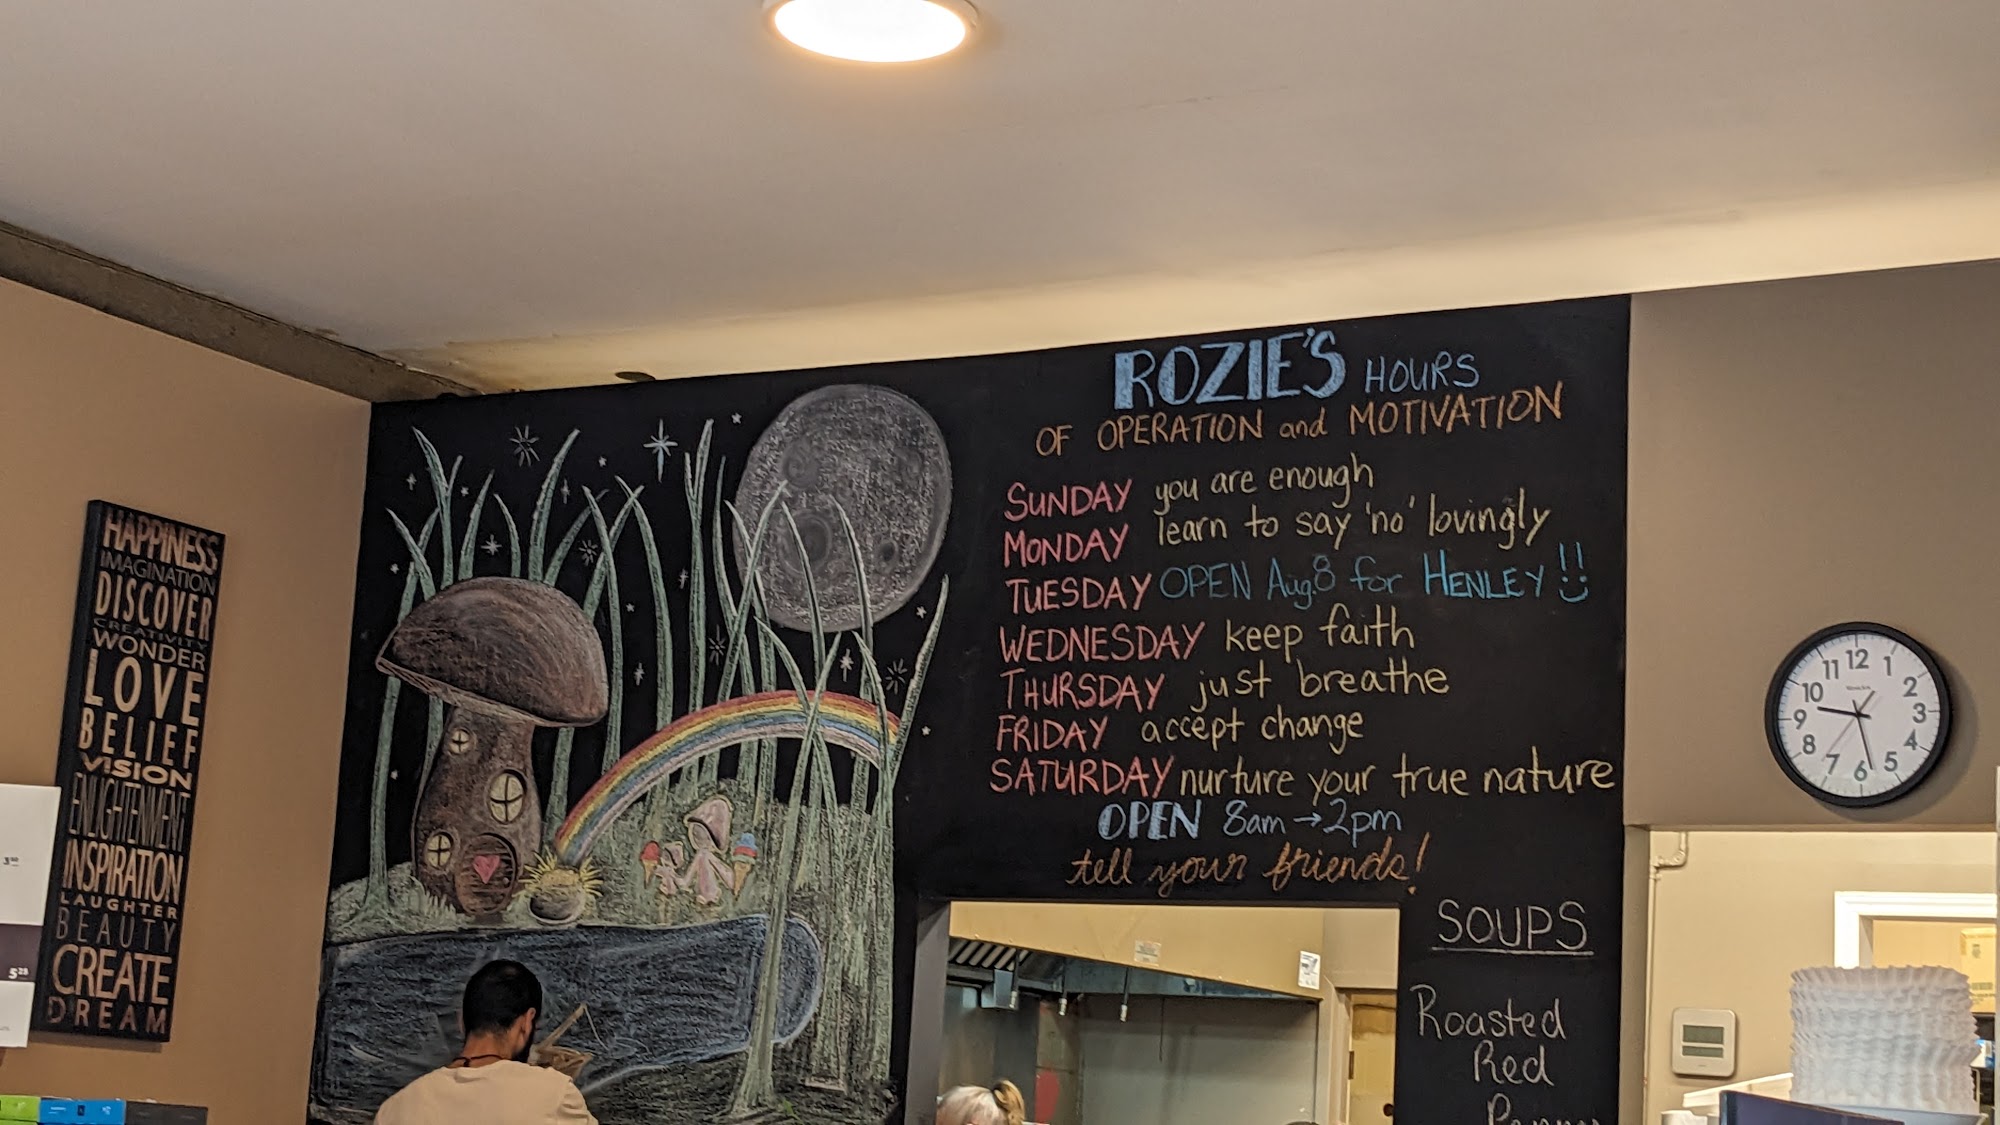 HAPPINESS
IMAGINATION
DISCOVER
CREATIVITY
WONDER
LOVE
BELIEF
VISION
ENLIGHTENMENT
INSPIRATION
LAUGHTER
BEAUTY
CREATE
DREAM
ROZIE'S HOURS
OF OPERATION and MOTIVATION
SUNDAY you are enough
MONDAY learn to say 'no' lovingly
TUESDAY OPEN Aug.8 for HENLEY!!
WEDNESDAY keep faith
THURSDAY just breathe
FRIDAY accept change
SATURDAY nurture your true nature
OPEN 8am→2pm
tell your friends!
SOUPS
Roasted
Red
12
1
2
3
4
5
6
7
8
9
10
11
5 25